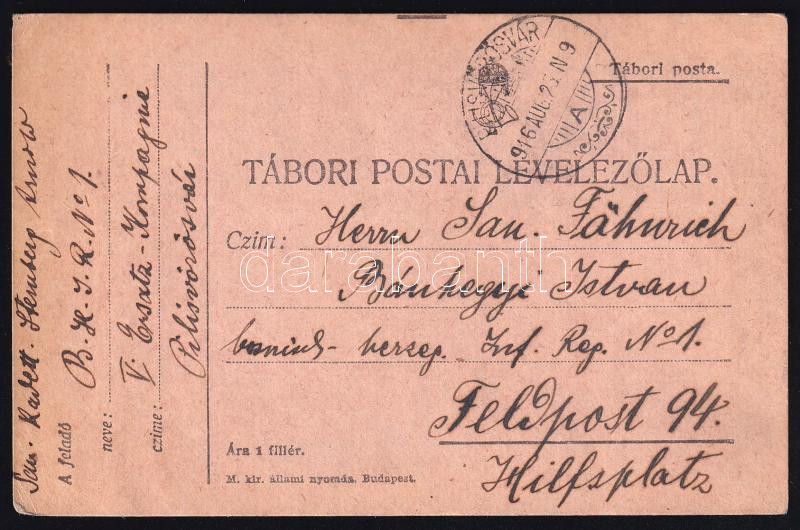 PILISVÖRÖSVÁR
916 AUG. 25. N 9
A
Tábori posta.
TÁBORI POSTAI LEVELEZŐLAP.
Czim: Herrn San. Fähnrich
Bánhegyi Istvan
bosnisch-herzeg. Inf. Reg. No 1.
Feldpost 94.
Hilfsplatz
Ára 1 fillér.
M. kir. állami nyomda. Budapest.
San. Kadett. Sternberg
A feladó
B. H. I. R. No 1.
neve:
V. Ersatz-Kompagnie
czime:
Pilisvörösvár
darabanth